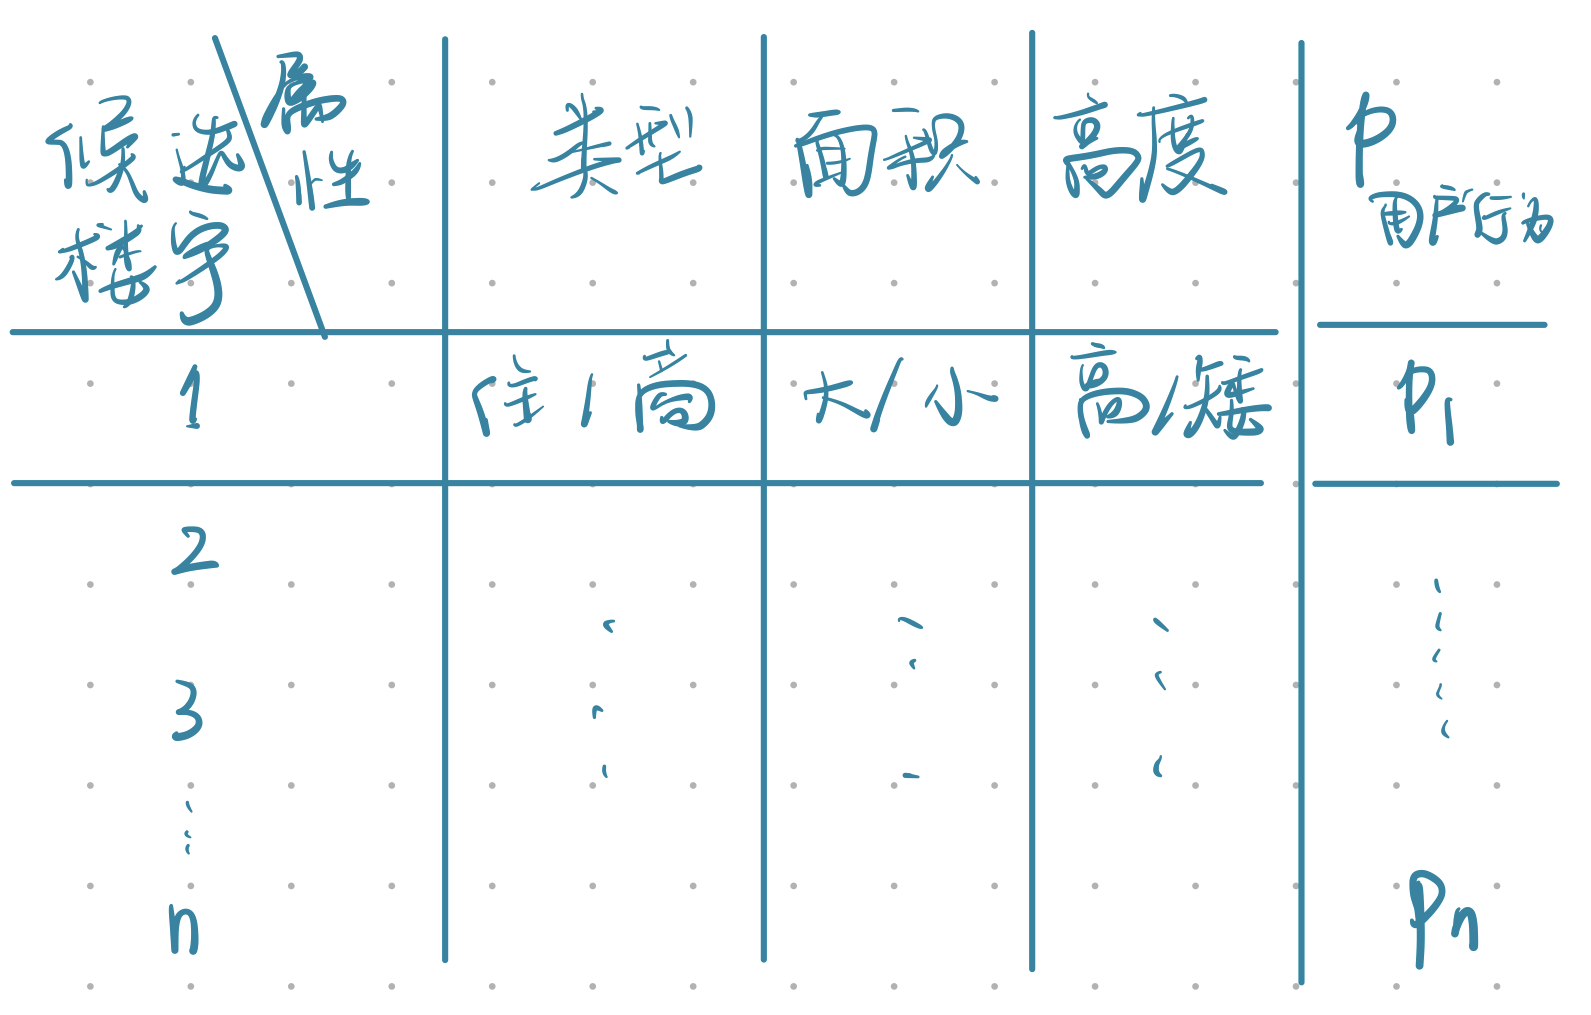 候选 属性 类型 面积 高度 P
楼宇 用户行为
1 住/商 大/小 高/矮 P1
2
3
n Pn